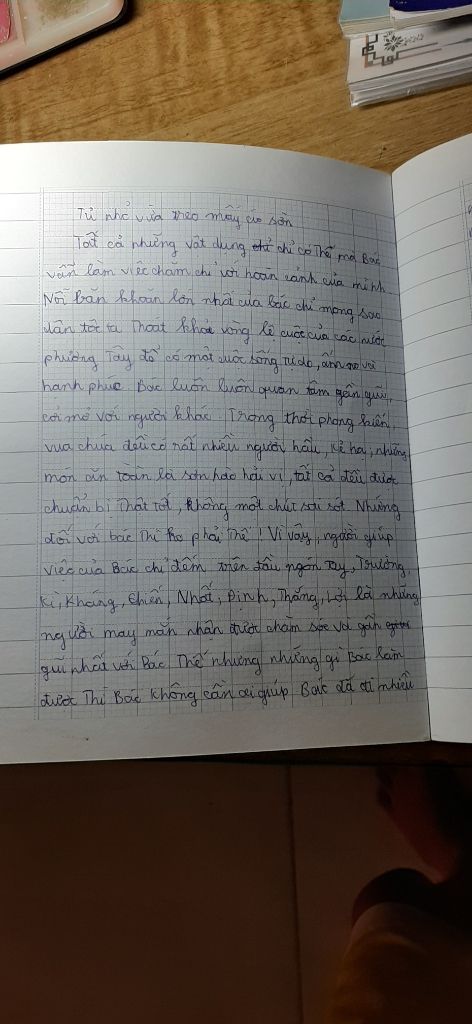 Tủ nhỏ vừa treo mấy áo sờn
Tất cả những vật dụng chỉ có thế mà Bác
vẫn làm việc chăm chỉ với hoàn cảnh của mình
Nỗi băn khoăn lớn nhất của bác chỉ mong sao
dân tộc ta thoát khỏi vòng lệ cuộc của các nước
phương Tây để có một cuộc sống tự do, ấm no và
hạnh phúc. Bác luôn luôn quan tâm gần gũi,
cởi mở với người khác. Trong thời phong kiến,
vua chúa đều có rất nhiều người hầu, kẻ hạ, những
món ăn toàn là sơn hào hải vị, tất cả đều được
chuẩn bị thật tốt, không một chút sai sót. Nhưng
đối với bác thì ko phải thế! Vì vậy, người giúp
việc của Bác chỉ đếm trên đầu ngón tay, Trường,
Kì, Kháng, Chiến, Nhất, Định, Thắng, Lợi là những
người may mắn nhận được chăm sóc và gần
gũi nhất với Bác. Thế nhưng những gì Bác làm
được thì Bác không cần ai giúp. Bác đã đi nhiều